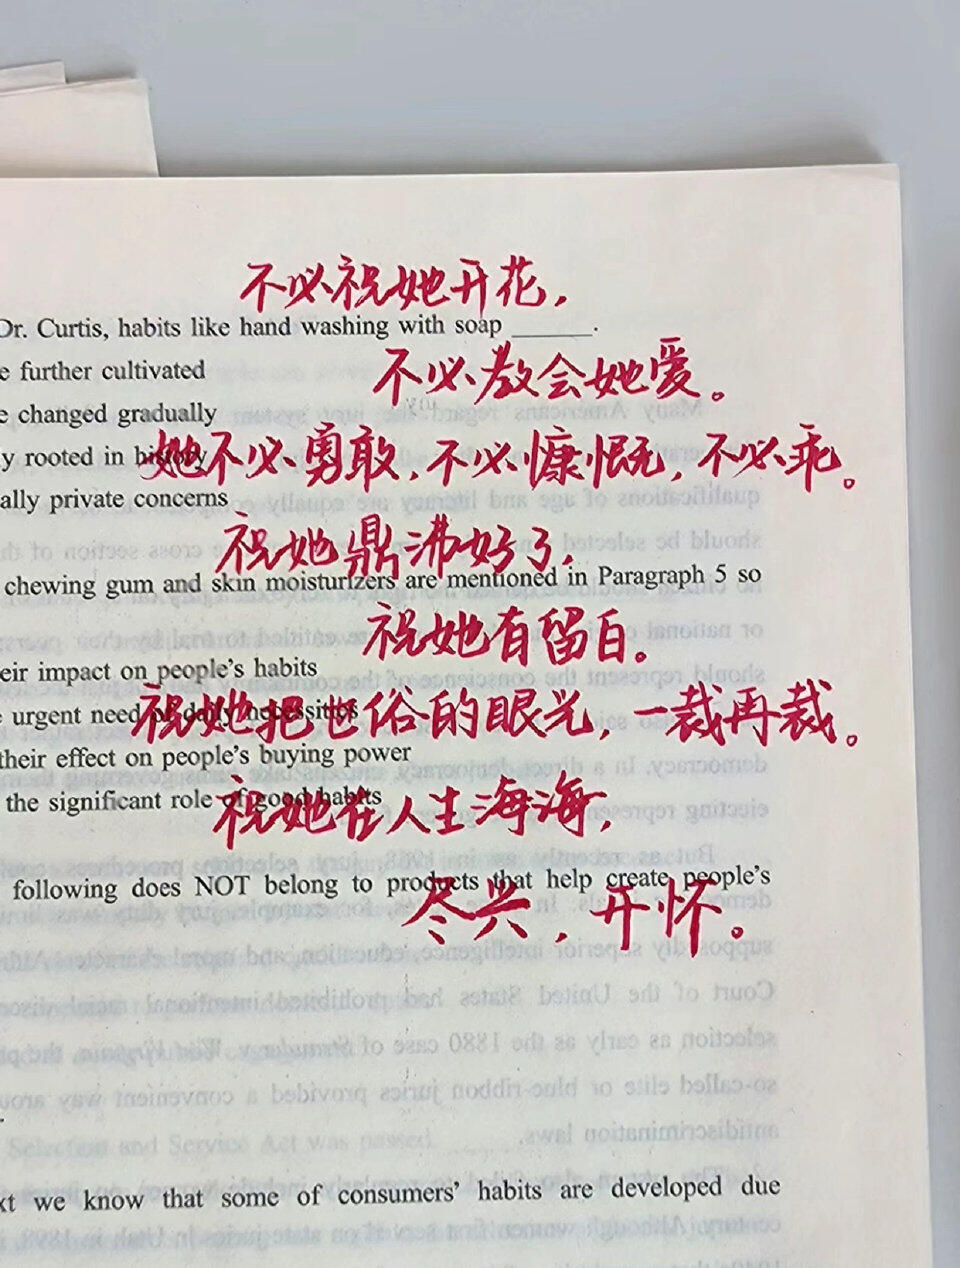 不必祝她开花，
Dr. Curtis, habits like hand washing with soap ______.
不必教会她爱。
e further cultivated
e changed gradually
她不必勇敢，不必慷慨，不必乖。
y rooted in history
ally private concerns
祝她鼎沸好了，
chewing gum and skin moisturizers are mentioned in Paragraph 5 so
祝她有留白。
eir impact on people's habits
祝她把世俗的眼光，一裁再裁。
urgent need of daily necessities
their effect on people's buying power
the significant role of good habits
祝她在人生海海，
following does NOT belong to products that help create people's
尽兴，开怀。
xt we know that some of consumers' habits are developed due